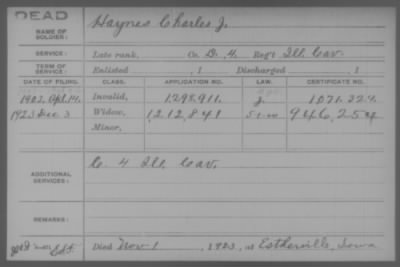 DEAD
NAME OF SOLDIER: Haynes Charles J.
SERVICE: Late rank, Co. D, 4, Reg't Ill. Cav.
TERM OF SERVICE: Enlisted , 1 Discharged , 1
DATE OF FILING. CLASS. APPLICATION NO. LAW. CERTIFICATE NO.
1903, Apl. 14. Invalid, 1,298,911. J. 1,071,224.
1923 Dec 3 Widow, 1,212,841 946,254
Minor,
ADDITIONAL SERVICES: C. 4 Ill. Cav.
REMARKS:
Died Nov 1, 1923, at Estherville, Iowa